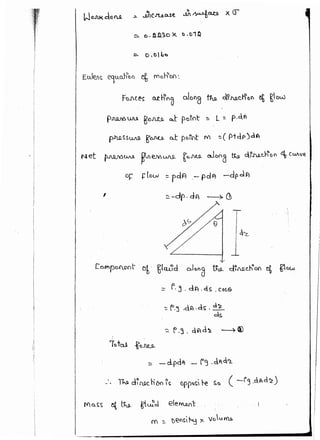 Workdone = increase in surface X σ
= 0.2230 X 0.072
= 0.0160
Eulers equation of motion:
Forces acting along the direction of flow
pressure force at point = L = p.dA
pressure force at point m = (P+dp)dA
Net pressure force along the direction of curve
of flow = pdA - pdA - dpdA
= -dp.dA → ①
ds θ dz
Component of fluid along the direction of flow
= ρ.g.dA.ds.cosθ
= ρ.g.dA.ds.dz/ds
= ρ.g.dAdz → ②
Total force
= -dpdA - ρg.dAdz
∴ The direction is opposite so (-ρg.dAdz)
Mass of the fluid element
m = Density x volume